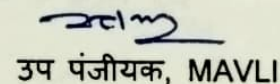 उप पंजीयक, MAVLI